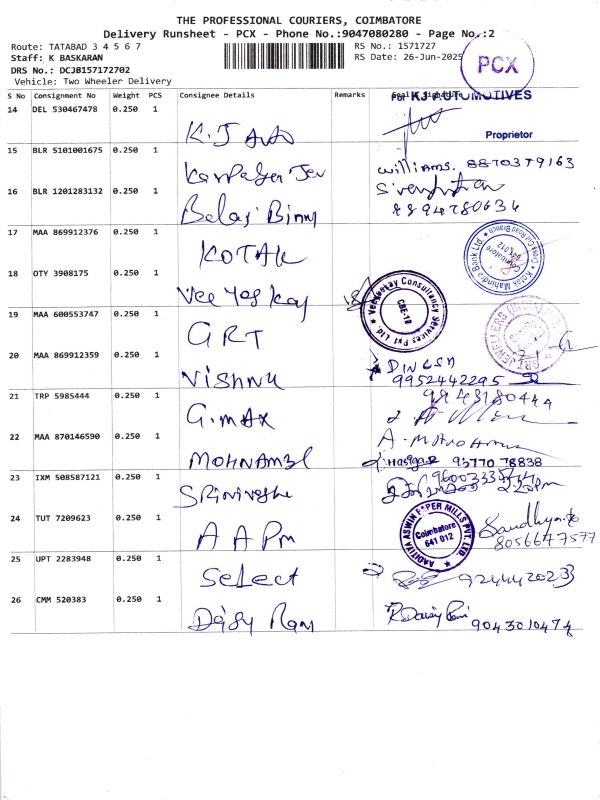 THE PROFESSIONAL COURIERS, COIMBATORE
Delivery Runsheet - PCX - Phone No.:9047080280 - Page No.:2
Route: TATABAD 3 4 5 6 7
Staff: K BASKARAN
DRS No.: DCJB157172702
Vehicle: Two Wheeler Delivery
RS No.: 1571727
RS Date: 26-Jun-2025
PCX
S No Consignment No Weight PCS Consignee Details Remarks Seal & Signature
For KJ AUTOMOTIVES
14 DEL 530467478 0.250 1
K.J Auto
Proprietor
15 BLR 5101001675 0.250 1
williams. 8870379163
16 BLR 1201283132 0.250 1
Balaji Binny
8894780634
17 MAA 869912376 0.250 1
KOTAK
Kotak Mahindra Bank Ltd. Cross Cut Road Branch
Coimbatore
641 012
18 OTY 3908175 0.250 1
Vee Yes Kay
Veeyeskay Consultancy Services Pvt Ltd.
CBE-12
19 MAA 600553747 0.250 1
GRT
GRT JEWELLERS
20 MAA 869912359 0.250 1
Vishnu
DINESH
9952442295
21 TRP 5985444 0.250 1
G.max
9943180444
22 MAA 870146590 0.250 1
A. Manoharan
93770 78838
23 IXM 508587121 0.250 1
24 TUT 7209623 0.250 1
A A Pm
AADITIYA ASWIN PAPER MILLS PVT. LTD.
Coimbatore
641 012
Sandhya
8056677577
25 UPT 2283948 0.250 1
Select
9244420233
26 CMM 520383 0.250 1
Daisy Rani
R. Daisy Rani
9043010474